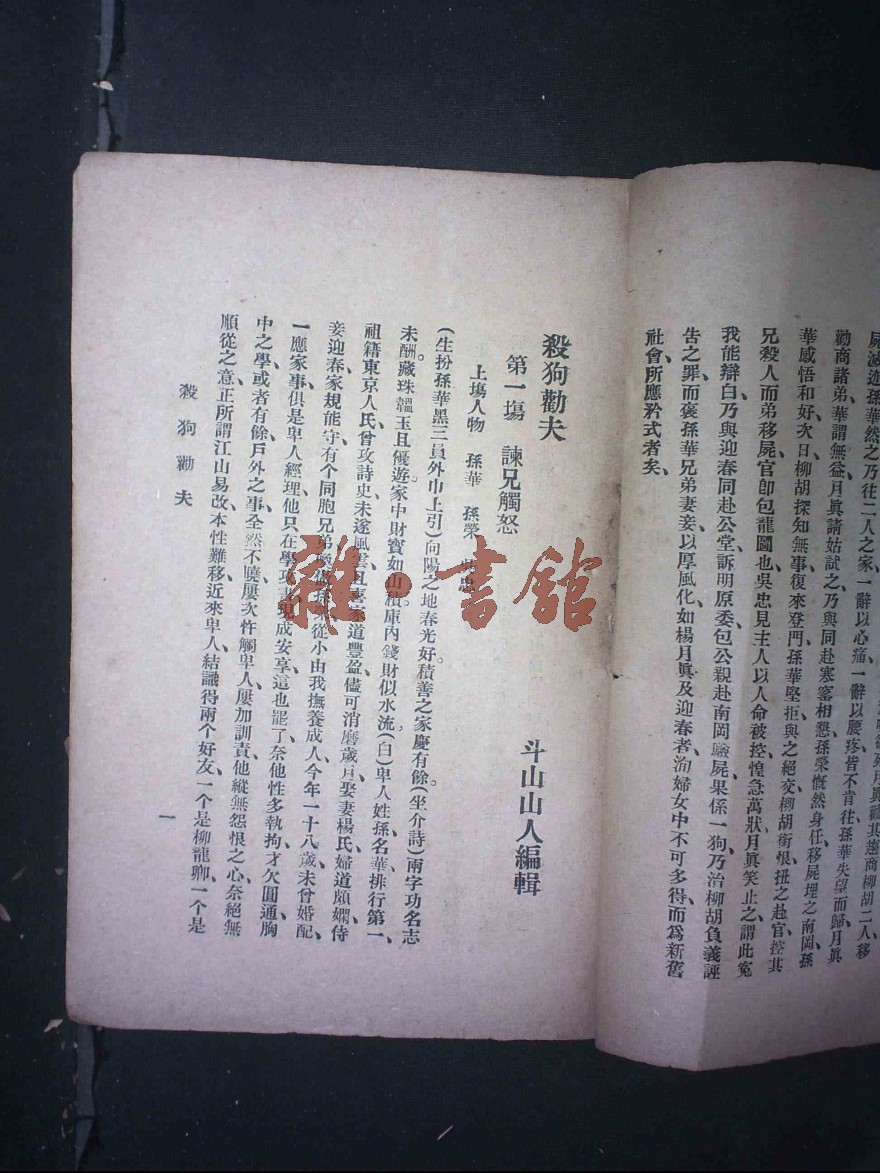 屍滅迹孫華然之乃往二人之家一辭以心痛一辭以腰疼皆不肯往孫華失望而歸月眞
勸商諸弟華謂無益月眞請姑試之乃與同赴寒窰相懇孫榮慨然身任移屍埋之南岡孫
華感悟和好次日柳胡探知無事復來登門孫華堅拒與之絕交柳胡銜恨扭之赴官控其
兄殺人而弟移屍官卽包龍圖也吳忠見主人以人命被控惶急萬狀月眞笑止之謂此寃
我能辯白乃與迎春同赴公堂訴明原委包公親赴南岡驗屍果係一狗乃治柳胡負義誣
告之罪而褒孫華兄弟妻妾以厚風化如楊月眞及迎春者洵婦女中不可多得而爲新舊
社會所應矜式者矣
殺狗勸夫
斗山山人編輯
第一塲 諫兄觸怒
上塲人物 孫華 孫榮
(生扮孫華黑三員外巾上引)向陽之地春光好。積善之家慶有餘(坐介詩)兩字功名志
未酬。藏珠韞玉且優遊。家中財寶如山積庫內錢財似水流。(白)卑人姓孫名華排行第一、
祖籍東京人氏曾攻詩史未遂風雲且喜家道豐盈儘可消磨歲月娶妻楊氏婦道頗嫻侍
妾迎春家規能守、有个同胞兄弟從小由我撫養成人今年一十八歲未曾婚配
一應家事俱是卑人經理他只在學攻書現成安享這也罷了奈他性多執拘才欠圓通胸
中之學或者有餘戶外之事全然不曉屢次忤觸卑人屢加訓責他縱無怨恨之心奈絕無
順從之意正所謂江山易改本性難移近來卑人結識得兩个好友一个是柳龍卿一个是
殺狗勸夫
一
雜·書館